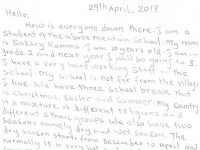 29th April, 2017
Hello,
How is everyone down there. I am a
student of the above mention school. My name
is Bakary Kamma. I am 10 years old, I am in
grade 2 and next year I will be going to 3.
I have a very hard working staff in the
school. My school is not far from the village
I live. We have three school break that
is Christmas, Easter and Summer. My country
is a mixture of different religions and
different ethnic groups. We also have two
seasons namely dry and wet season. The
dry season starts from December to April and
normally it is very hot